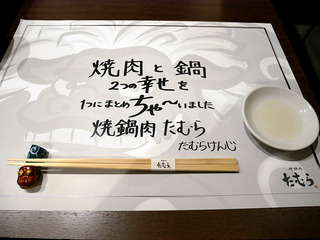 焼肉と鍋
2つの幸せを
1つにまとめちゃ〜いました
焼鍋肉たむら
たむらけんじ
たむら